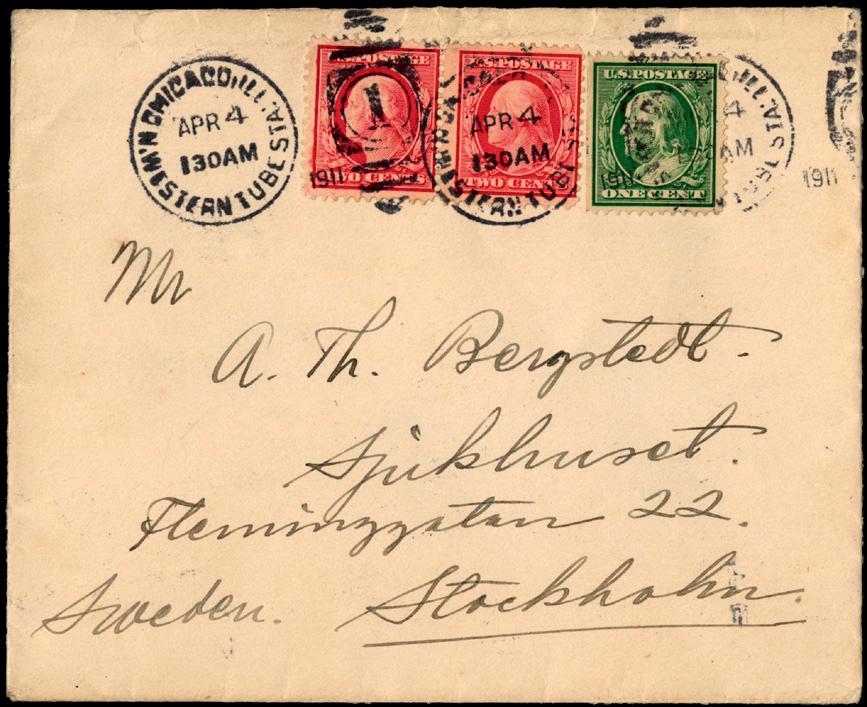 CHICAGO, ILL.
W'N WESTERN TUBE STA.
APR 4
130AM
1911
U.S. POSTAGE
TWO CENTS
1
U.S. POSTAGE
TWO CENTS
APR 4
130AM
WESTERN TUBE
U.S. POSTAGE
ONE CENT
191
ILL.
4
AM
STA
1911
Mr
A. Th. Bergstedt.
Sjukhuset.
Fleminggatan 22.
Sweden. Stockholm.